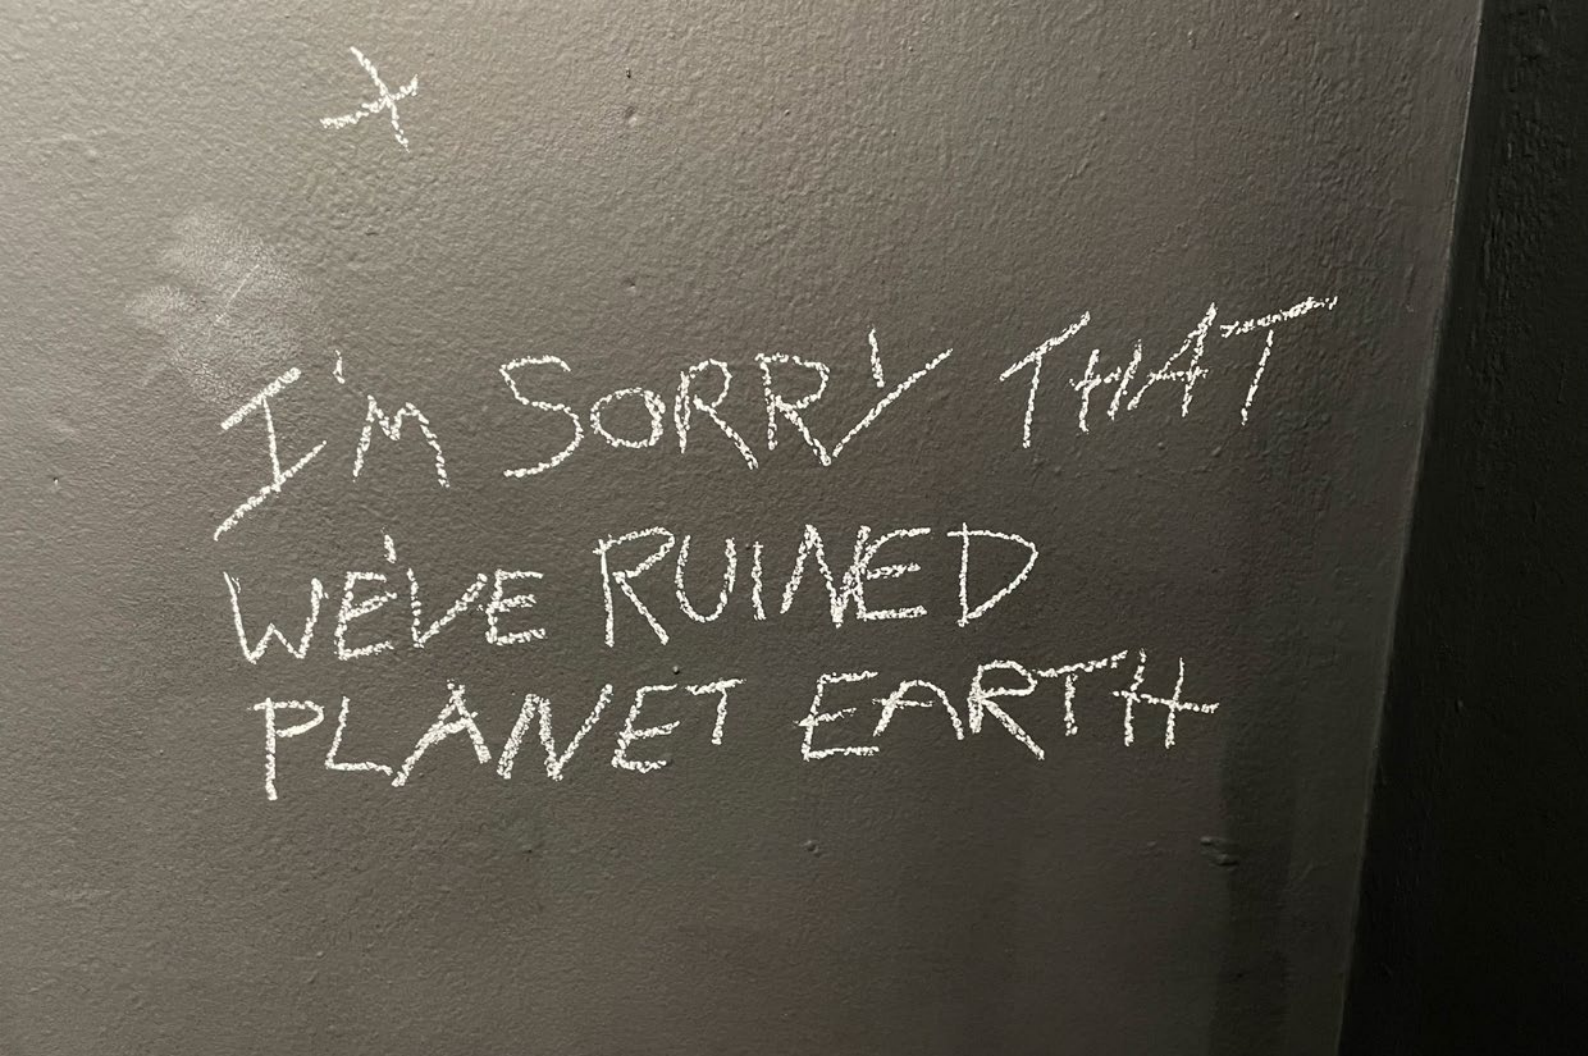 I'M SORRY THAT
WE'VE RUINED
PLANET EARTH